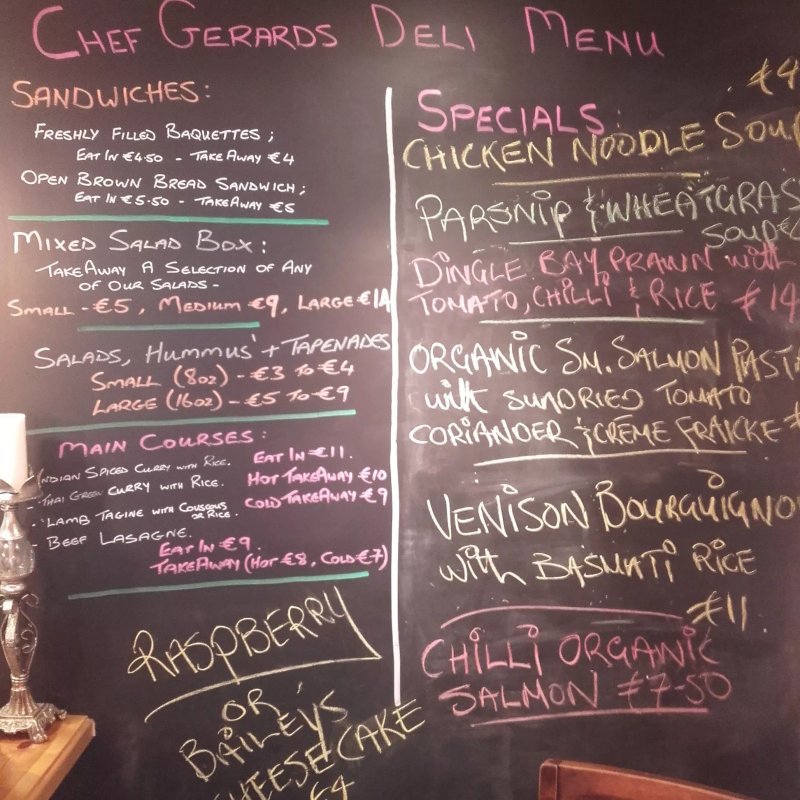 CHEF GERARDS DELI MENU
SANDWICHES:
FRESHLY FILLED BAQUETTES;
EAT IN €4.50 - TAKE AWAY €4
OPEN BROWN BREAD SANDWICH;
EAT IN €5.50 - TAKEAWAY €5
MIXED SALAD BOX:
TAKEAWAY A SELECTION OF ANY
OF OUR SALADS -
SMALL - €5, MEDIUM €9, LARGE €14
SALADS, HUMMUS' + TAPENADES
SMALL (8OZ) - €3 TO €4
LARGE (16OZ) - €5 TO €9
MAIN COURSES:
INDIAN SPICED CURRY WITH RICE.
- THAI GREEN CURRY WITH RICE.
- LAMB TAGINE WITH COUSCOUS OR RICE.
- BEEF LASAGNE.
EAT IN €11.
HOT TAKEAWAY €10
COLD TAKEAWAY €9
EAT IN €9.
TAKEAWAY (HOT €8, COLD €7)
RASPBERRY
OR
BAILEY'S
CHEESECAKE
€4
SPECIALS:
€4
CHICKEN NOODLE SOUP
PARSNIP & WHEATGRAS
SOUP
DINGLE BAY PRAWN with
TOMATO, CHILLI & RICE €14
ORGANIC SM. SALMON PASTA
with SUNDRIED TOMATO
CORIANDER & CRÈME FRAICKE €
VENISON BOURGUIGNO
with BASMATI RICE
€11.
CHILLI ORGANIC
SALMON €7-50